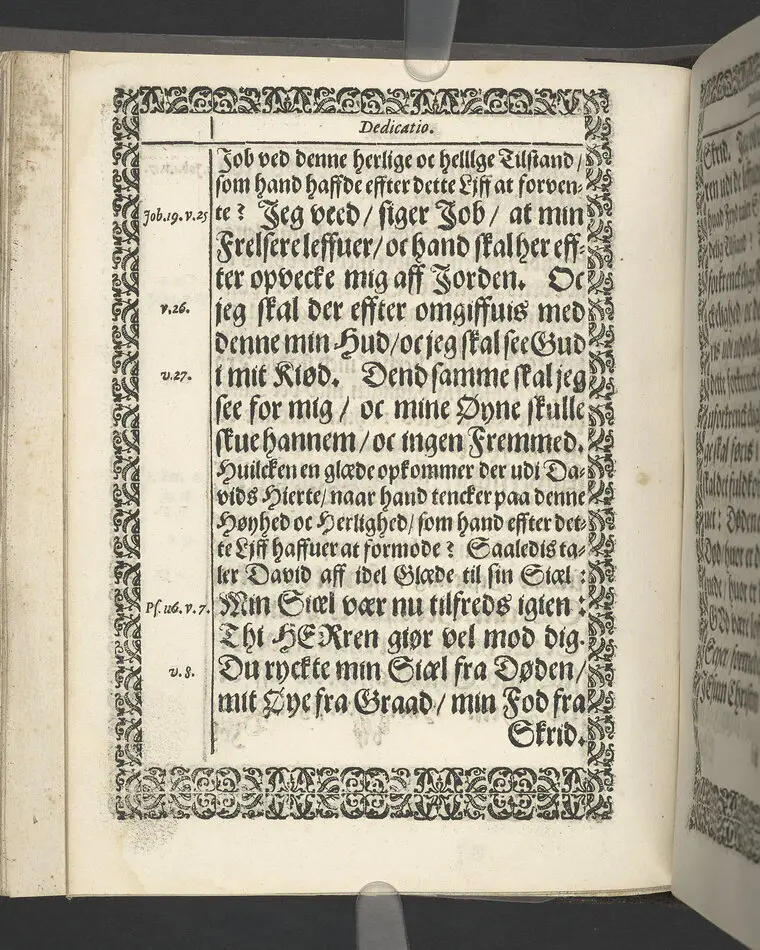 Dedicatio.
Job ved denne herlige oc helllge Tilstand/
som hand haffde effter dette Liff at forven-
Job.19.v.25 te? Jeg veed/ siger Job/ at min
Frelsere leffuer/ oc hand skal her eff-
ter opvecke mig aff Jorden. Oc
v.26. jeg skal der effter omgiffuis med
denne min Hud/ oc jeg skal see Gud
v.27. i mit Kiød. Dend samme skal jeg
see for mig/ oc mine Øyne skulle
skue hannem/ oc ingen Fremmed.
Huilcken en glæde opkommer der udi Da-
vids Hierte/ naar hand tencker paa denne
Høyhed oc Herlighed/ som hand effter det-
te Liff haffuer at formode? Saaledis ta-
ler David aff idel Glæde til sin Siæl:
Ps.116.v.7. Min Siæl vær nu tilfreds igien:
Thi HERren giør vel mod dig.
v.8. Du ryckte min Siæl fra Døden/
mit Øye fra Graad/ min Fod fra
Skrid.